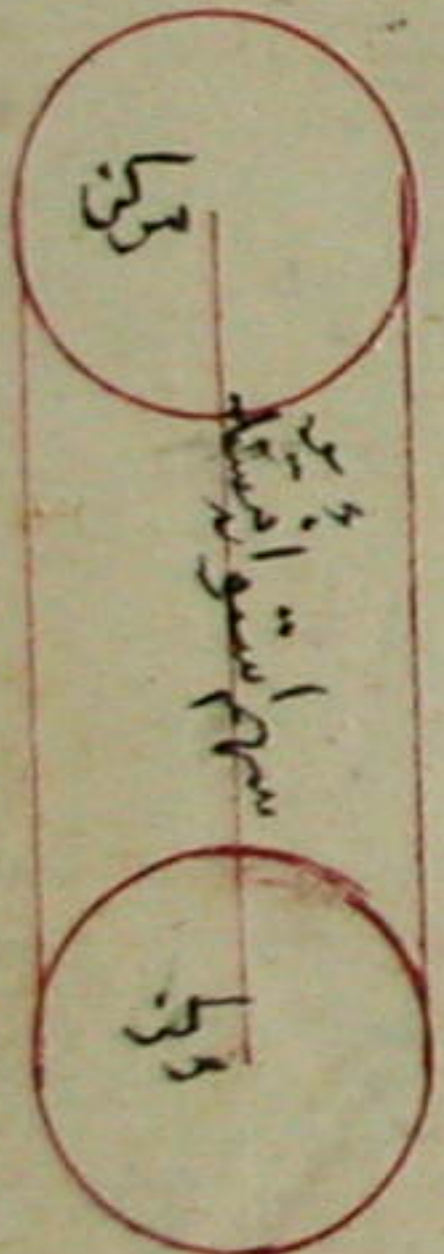 مركز
سهم اسطوانة مستديرة
مركز